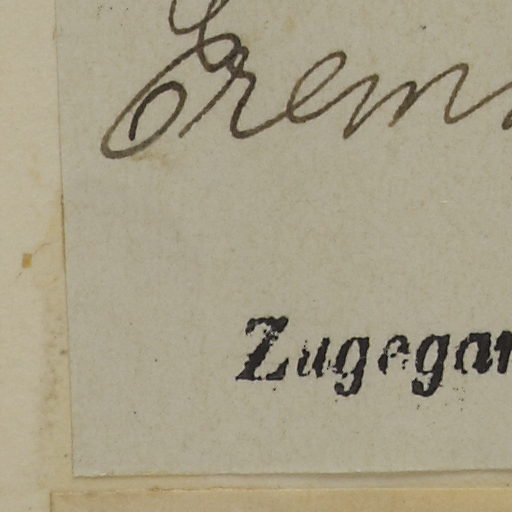 Erem
Zugegan